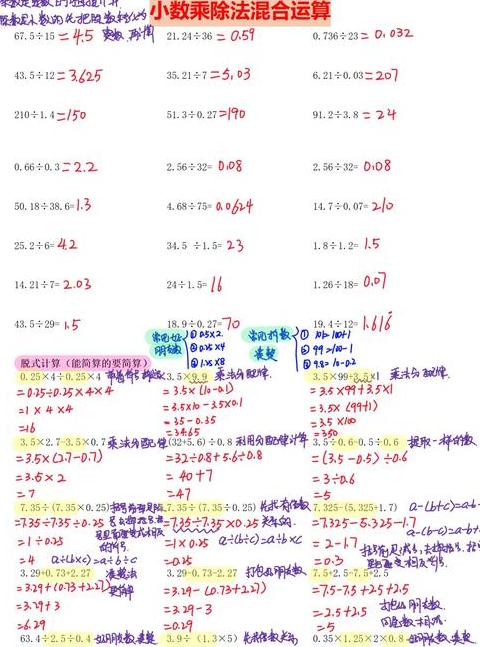 小数乘除法混合运算
67.5÷15 = 4.5
21.24÷36 = 0.59
0.736÷23 = 0.032
43.5÷12 = 3.625
35.21÷7 = 5.03
6.21÷0.03 = 207
210÷1.4 = 150
51.3÷0.27 = 190
91.2÷3.8 = 24
0.66÷0.3 = 2.2
2.56÷32= 0.08
2.56÷32= 0.08
50.18÷38.6= 1.3
4.68÷75= 0.0624
14.7÷0.07= 210
25.2÷6= 4.2
34.5 ÷1.5= 23
1.8÷1.2= 1.5
14.21÷7= 2.03
24÷1.5= 16
1.26÷18= 0.07
43.5÷29= 1.5
18.9÷0.27= 70
19.4÷12= 1.616
常见好朋友数
① 0.5×2
② 0.25×4
③ 1.25×8
常见拆数类型
① 101=100+1
② 99=100-1
③ 9.8=10-0.2
脱式计算（能简算的要简算）
0.25×4÷0.25×4
= 0.25÷0.25×4×4
= 1×4×4
=16
3.5×9.9 乘法分配律
= 3.5×(10-0.1)
= 3.5×10-3.5×0.1
= 35-0.35
= 34.65
3.5×99+3.5×1 乘法分配律
= 3.5×99+3.5×1
= 3.5×(99+1)
= 3.5×100
= 350
3.5×2.7-3.5×0.7 乘法分配律
= 3.5×(2.7-0.7)
= 3.5×2
= 7
(32+5.6)÷0.8 利用分配律计算
= 32÷0.8+5.6÷0.8
= 40+7
= 47
3.5÷0.6-0.5÷0.6 提取一样的数
= (3.5-0.5)÷0.6
= 3÷0.6
=5
7.35÷(7.35×0.25)
=7.35÷7.35÷0.25
= 1÷0.25
= 4 a÷(b×c)=a÷b÷c
7.35÷(7.35÷0.25)
=7.35÷7.35×0.25
= 1×0.25 a÷(b÷c)=a÷b×c
=0.25
7.325-(5.325+1.7) a-(b+c)=a-b-c
= 7.325-5.325-1.7
= 2-1.7
= 0.3
3.29+0.73+2.27
= 3.29+(0.73+2.27)
= 3.29+3
= 6.29
3.29-0.73-2.27 打包好朋友数
= 3.29-(0.73+2.27)
= 3.29-3
= 0.29
7.5+2.5-7.5+2.5
= 7.5-7.5+2.5+2.5
= 2.5+2.5
= 5
63.4÷2.5÷0.4 好朋友数类型
3.9÷（1.3×5）
0.35×1.25×2×0.8 好朋友数类型